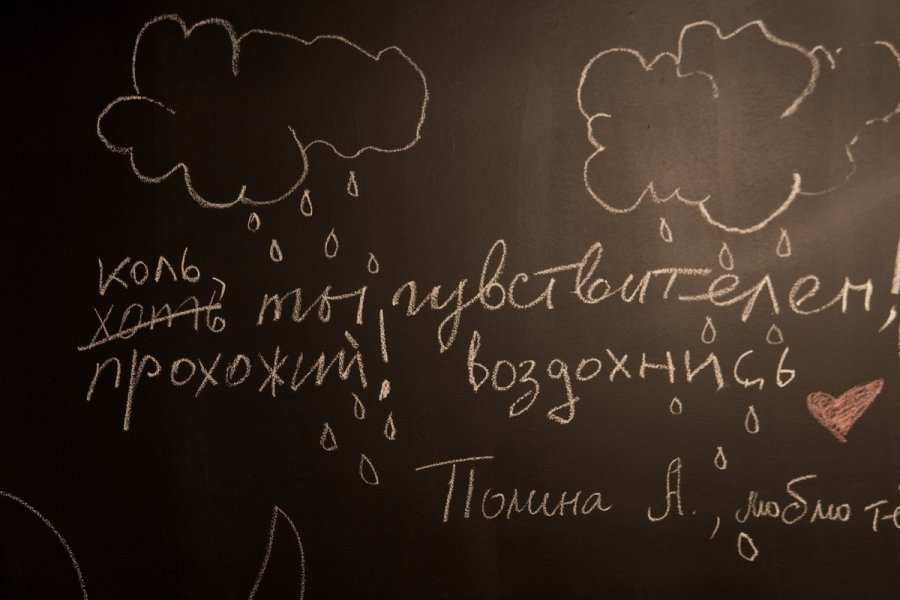 коль
хоть ты чувствителен,
прохожий! воздохнись
Полина А., люблю те